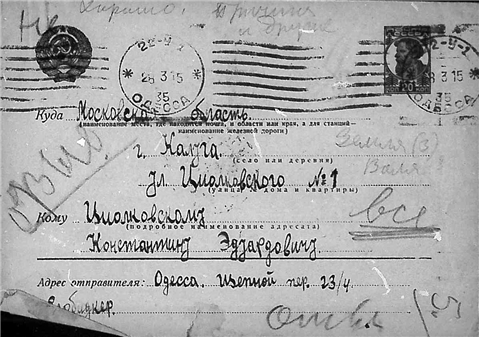 Не
Хорошо.
и другие
22-У-2
28 3 15
35
ОДЕССА
22-У-2
28 3 15
35
ОДЕССА
20
Куда Московская область.
(наименование места, где находится почта, и области или края, а для станций—
наименование железной дороги)
г. Калуга
(село или деревня)
Ул Циолковского № 1
(улица, № дома и квартиры)
Кому Циолковскому
(подробное наименование адресата)
Константину Эдуардовичу
Адрес отправителя: Одесса. Цепной пер. 23/4
все